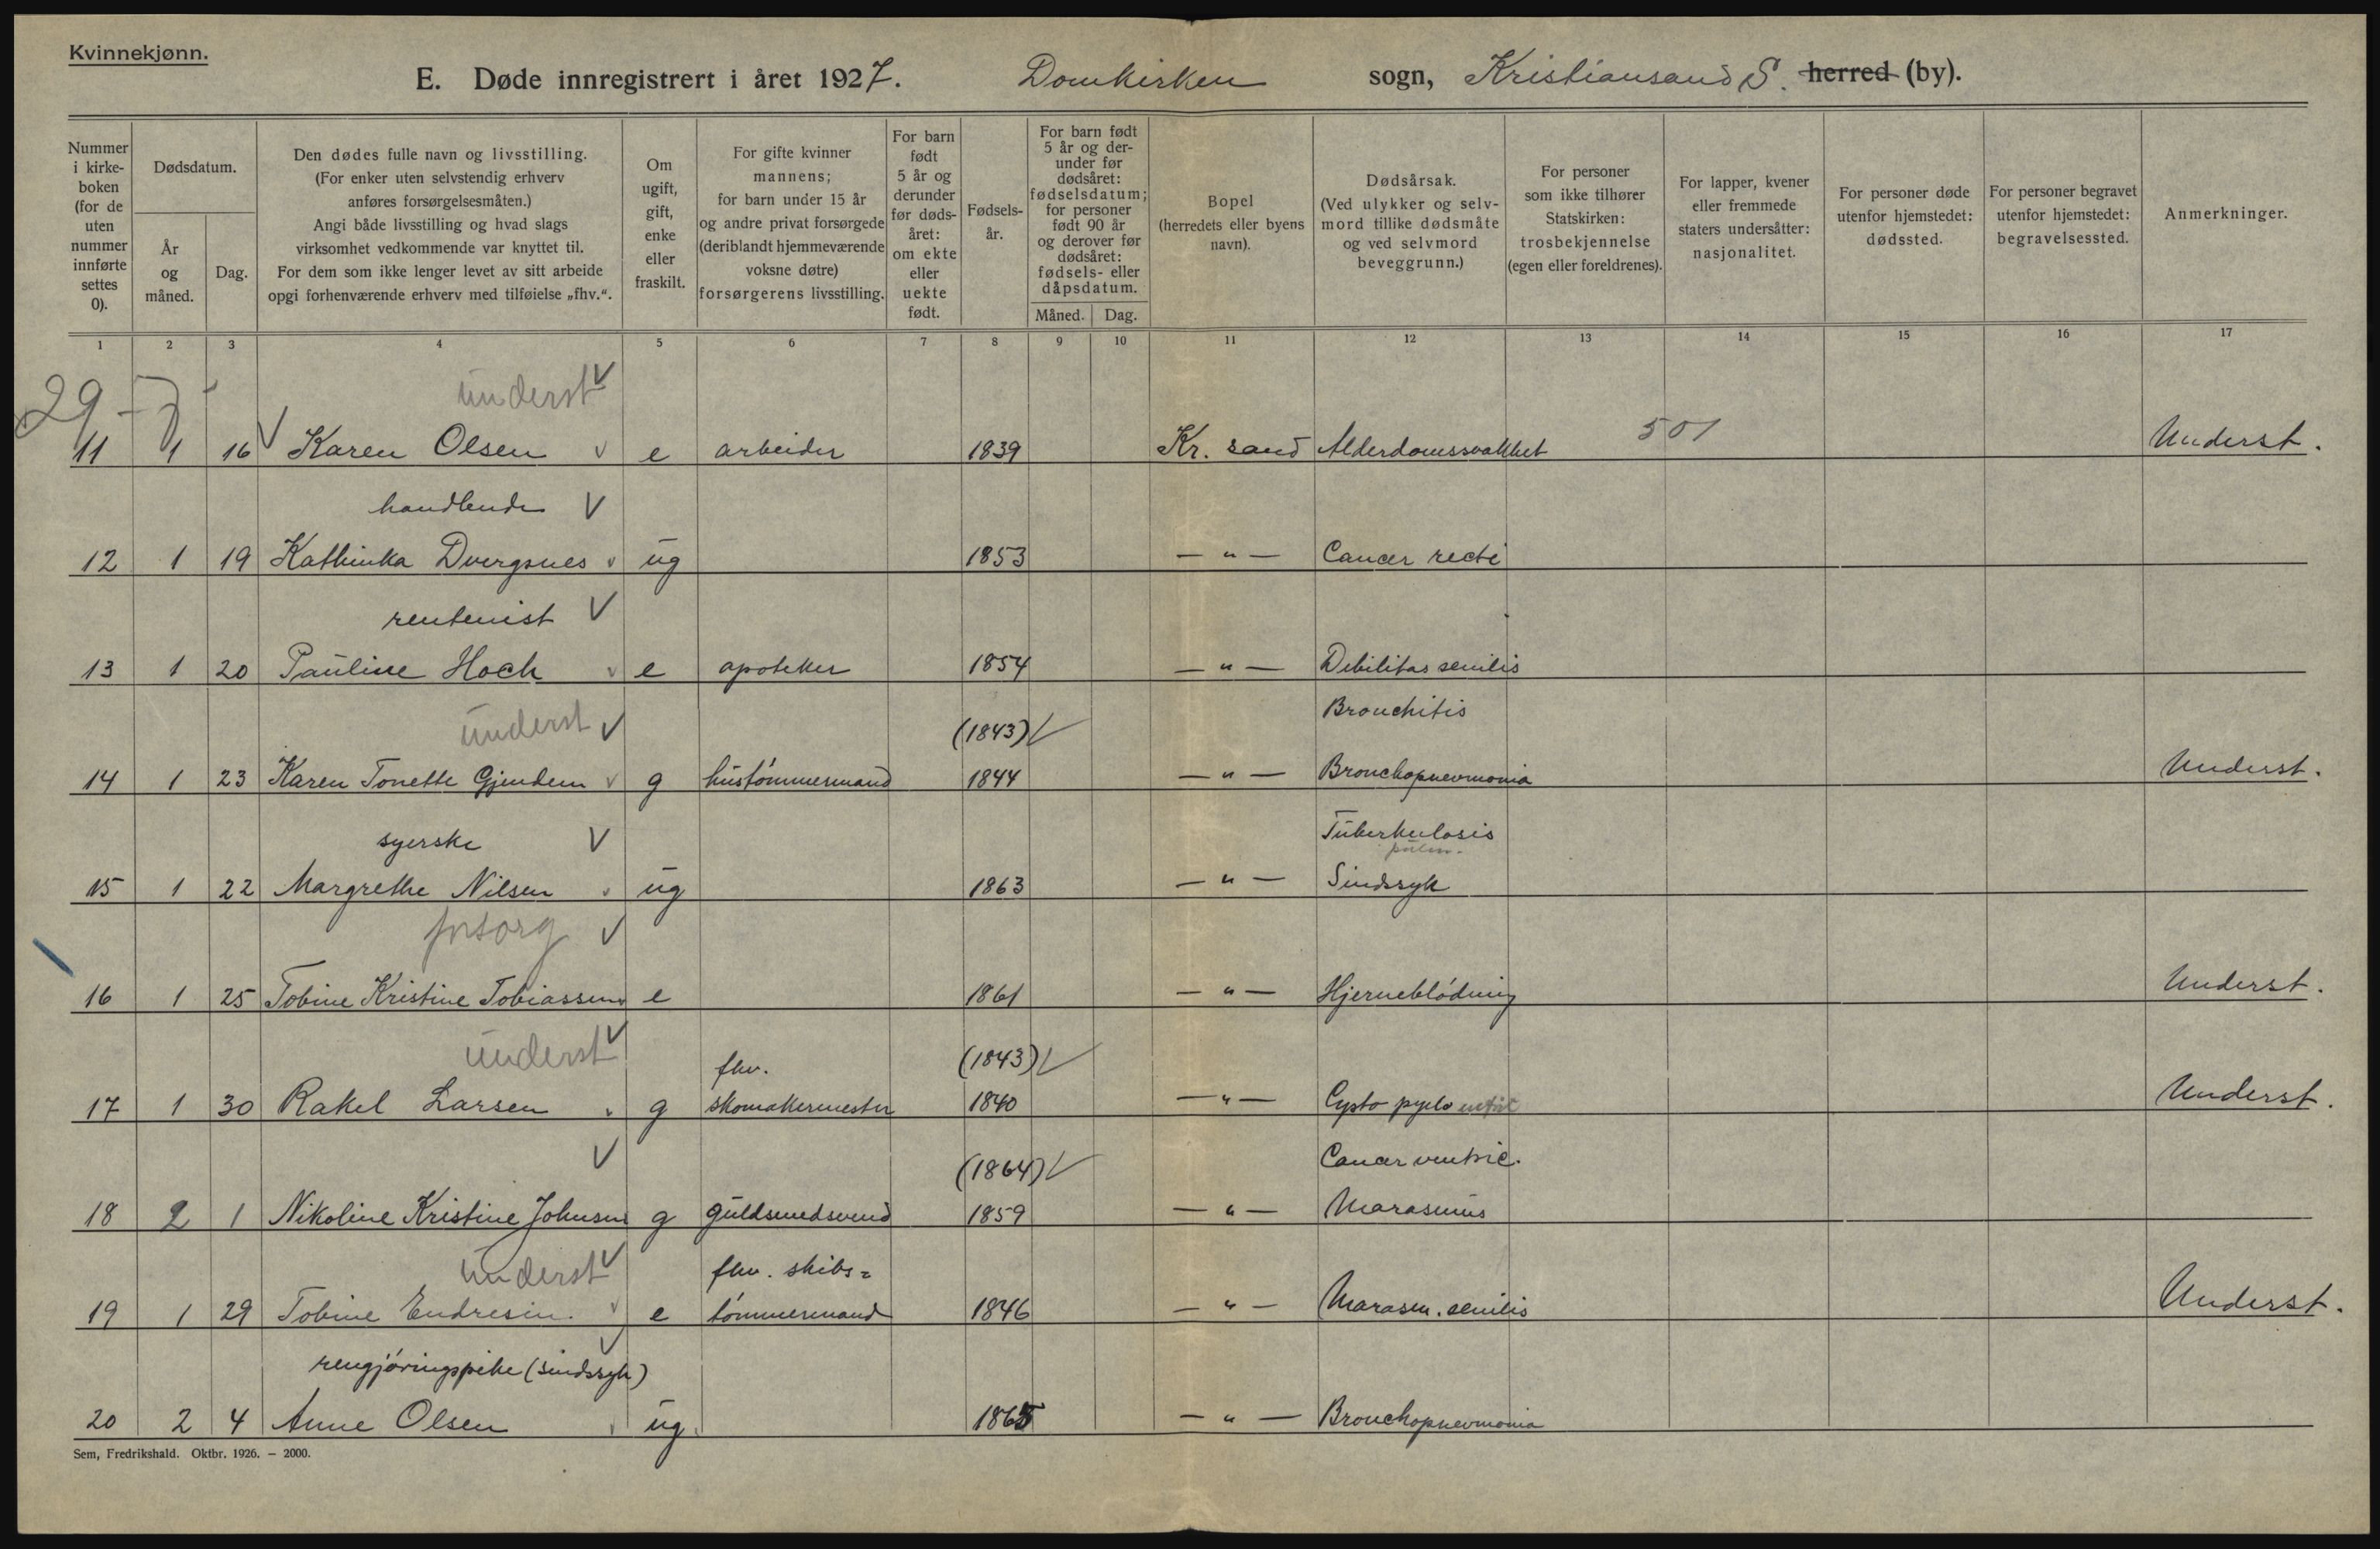 Kvinnekjønn.
E. Døde innregistrert i året 1927. Domkirken sogn, Kristiansand S. herred (by).
Nummer i kirke- boken (for de uten nummer innførte settes 0).
Dødsdatum.
År og måned.
Dag.
Den dødes fulle navn og livsstilling. (For enker uten selvstendig erhverv anføres forsørgelsesmåten.) Angi både livsstilling og hvad slags virksomhet vedkommende var knyttet til. For dem som ikke lenger levet av sitt arbeide opgi forhenværende erhverv med tilføielse „fhv.“.
Om ugift, gift, enke eller fraskilt.
For gifte kvinner mannens; for barn under 15 år og andre privat forsørgede (deriblandt hjemmeværende voksne døtre) forsørgerens livsstilling.
For barn født 5 år og derunder før døds- året: om ekte eller uekte født.
Fødsels- år.
For barn født 5 år og der- under før dødsåret: fødselsdatum; for personer født 90 år og derover før dødsåret: fødsels- eller dåpsdatum.
Måned. Dag.
Bopel (herredets eller byens navn).
Dødsårsak. (Ved ulykker og selv- mord tillike dødsmåte og ved selvmord beveggrunn.)
For personer som ikke tilhører Statskirken: trosbekjennelse (egen eller foreldrenes).
For lapper, kvener eller fremmede staters undersåtter: nasjonalitet.
For personer døde utenfor hjemstedet: dødssted.
For personer begravet utenfor hjemstedet: begravelsessted.
Anmerkninger.
1 2 3 4 5 6 7 8 9 10 11 12 13 14 15 16 17
29-7-
underst
11 1 16 Karen Olsen e arbeider 1839 Kr. sand Alderdomssvakhet 501 Underst.
handlende
12 1 19 Kathinka Dvergsnes ug 1853 — " — Cancer recti
rentenist
13 1 20 Pauline Hoch e apoteker 1854 — " — Debilitas senilis
underst (1843) Bronchitis
14 1 23 Karen Tonette Gjendem g hustømmermand 1844 — " — Bronchopnevmonia Underst.
syerske Tuberkulosis
pulm.
15 1 22 Margrethe Nilsen ug 1863 — " — Sindssyk
forsorg
16 1 25 Tobine Kristine Tobiassen e 1861 — " — Hjerneblødning Underst.
underst fhv. (1843)
17 1 30 Rakel Larsen g skomakermester 1840 — " — Cysto pyelo Underst.
(1864) Cancer ventric.
18 2 1 Nikoline Kristine Johnsen g guldsmedsvend 1859 — " — Marasmus
underst fhv. skibs=
19 1 29 Tobine Endresen. e tømmermand 1846 — " — Marasm. senilis Underst.
rengjøringspike (sindssyk)
20 2 4 Anne Olsen ug. 1865 — " — Bronchopnevmonia
Sem, Fredrikshald. Oktbr. 1926. – 2000.